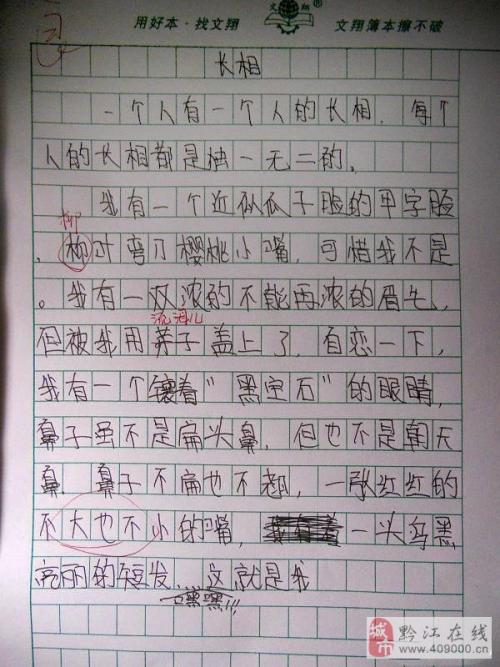 用好本·找文翔
文翔
文翔簿本擦不破
长相
一个人有一个人的长相,每个
人的长相都是独一无二的。
我有一个近似瓜子脸的甲字脸
柳
、柳才弯刀樱桃小嘴,可惜我不是
。我有一双浓的不能再浓的眉毛,
流海儿
但被我用
子盖上了,自恋一下,
我有一个镶着"黑宝石"的眼睛,
鼻子虽不是扁头鼻,但也不是朝天
鼻,鼻子不扁也不翘,一张红红的
不大也不小的嘴,
一头乌黑
亮丽的短发……这就是我
嘿嘿!!!
城市
黔江在线
www.409000.cn